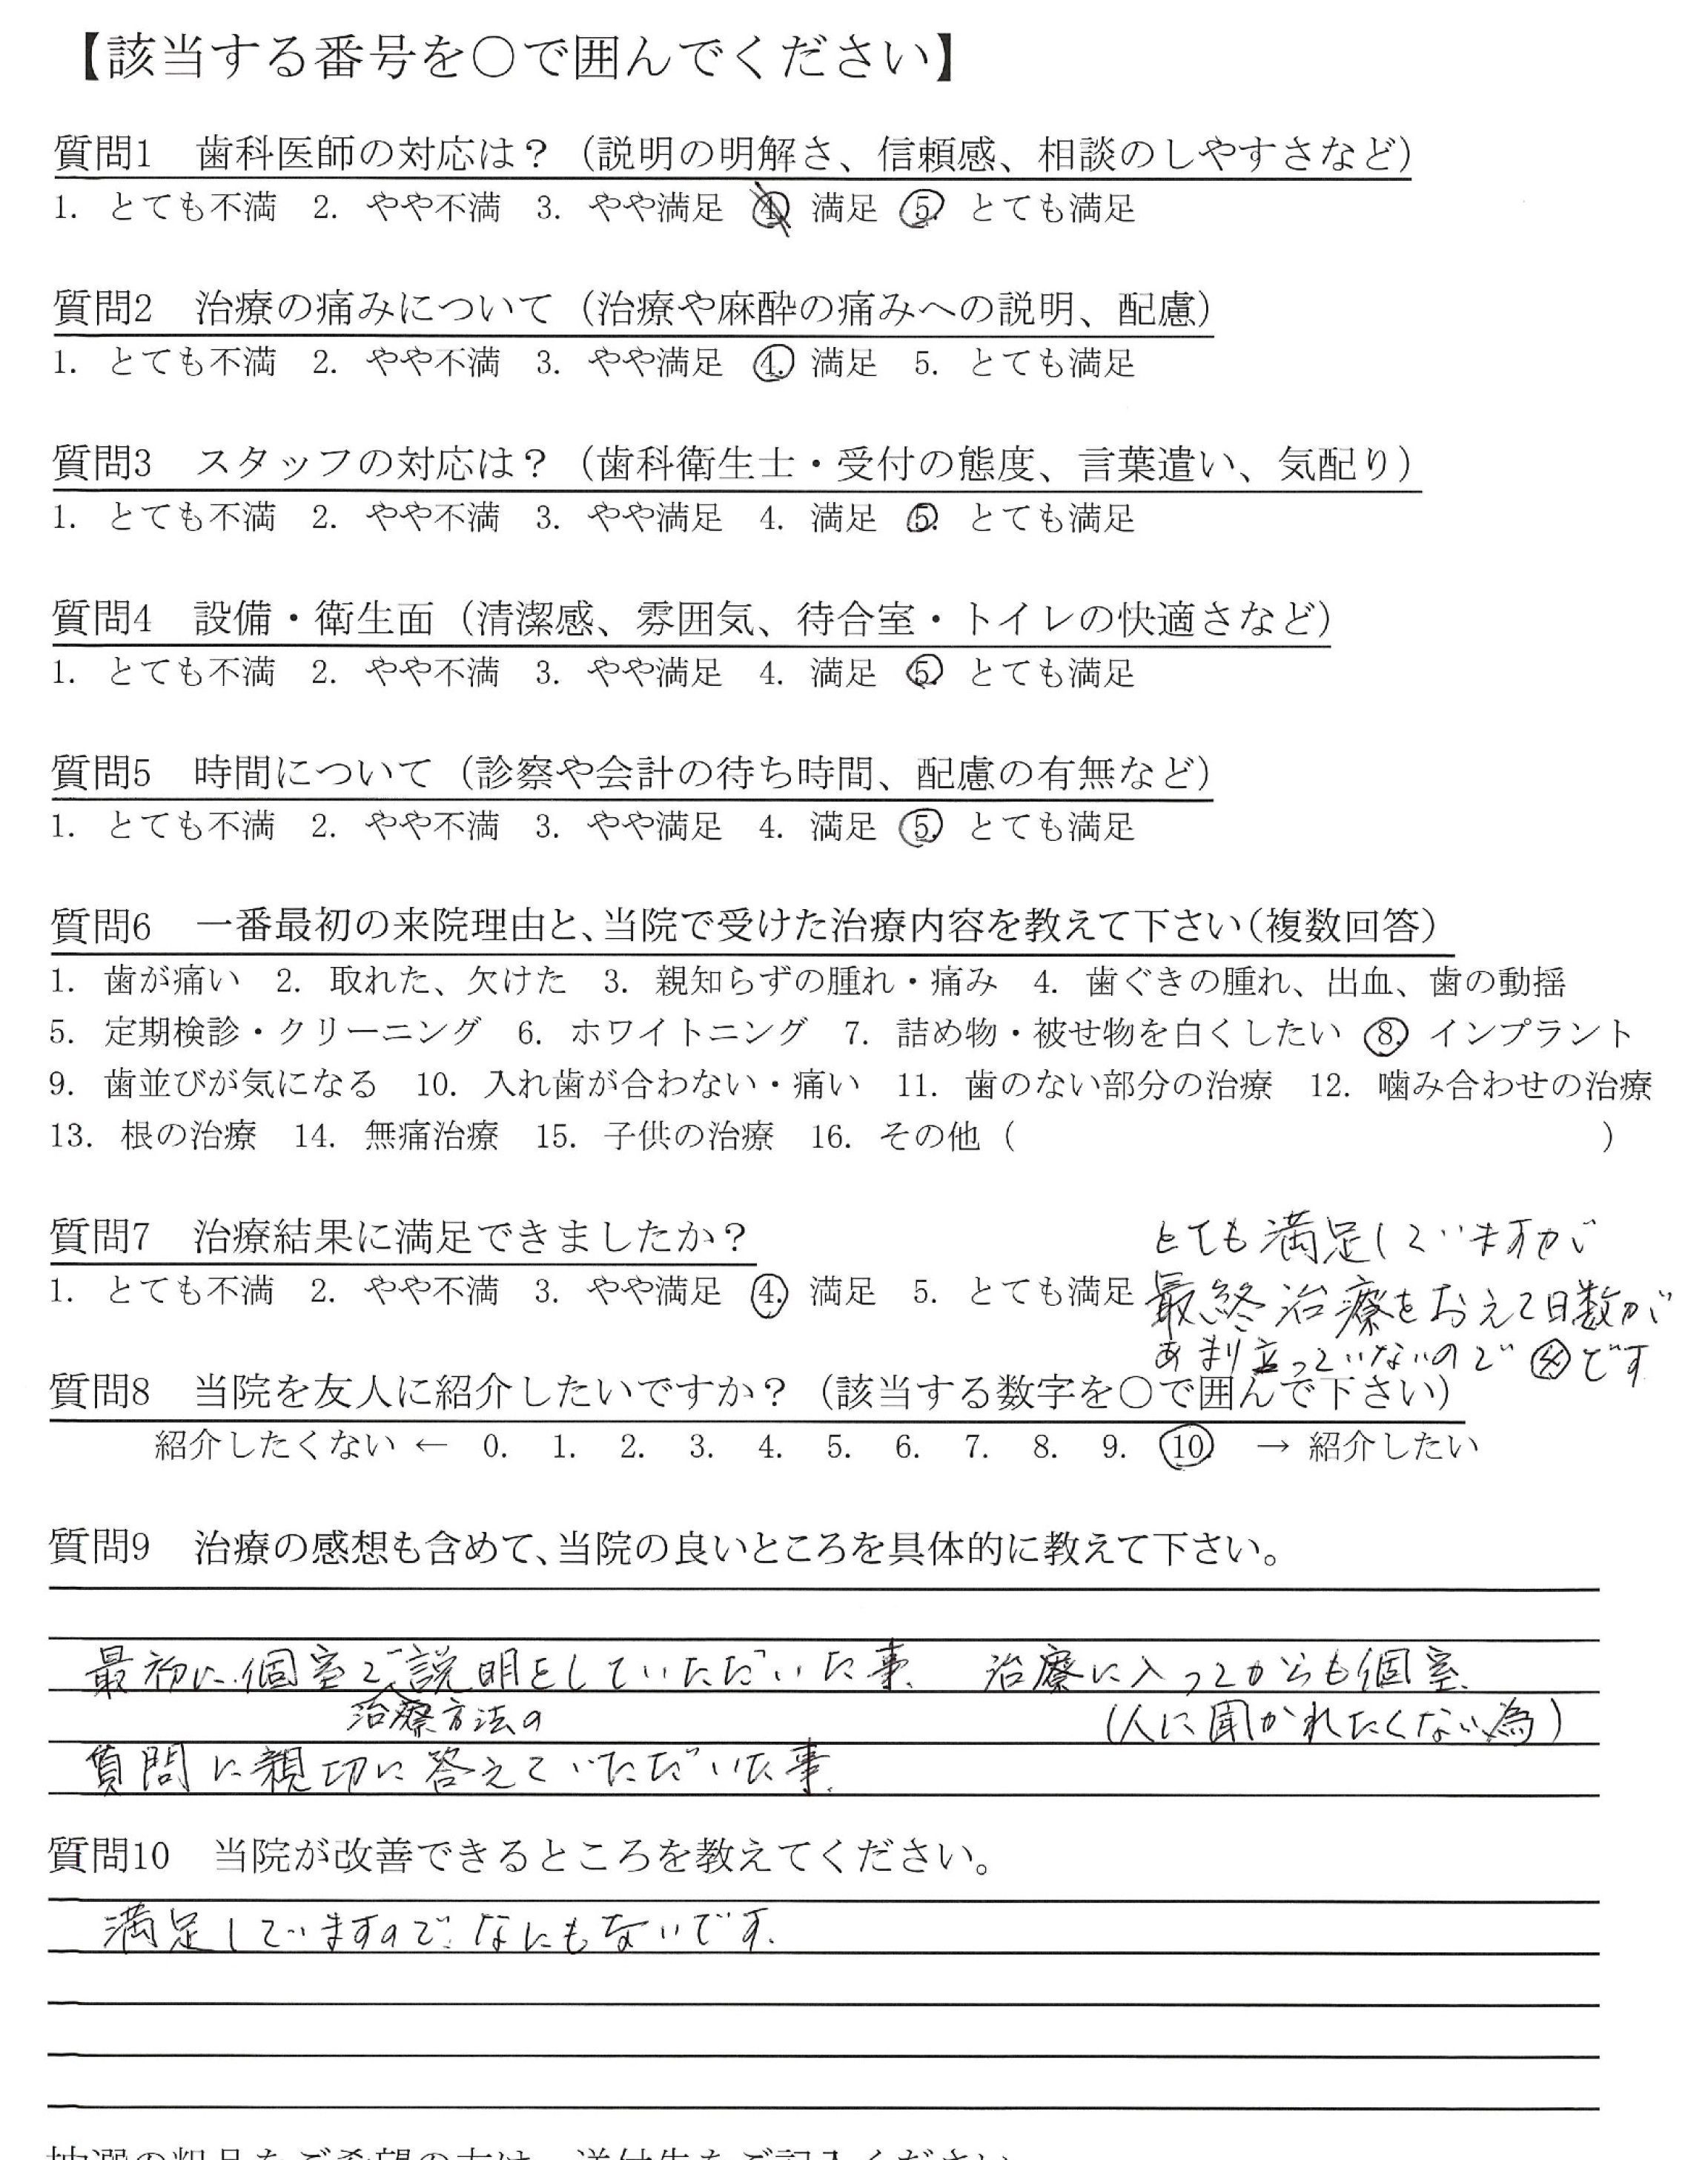 【該当する番号を○で囲んでください】
質問1　歯科医師の対応は？（説明の明解さ、信頼感、相談のしやすさなど）
1. とても不満　2. やや不満　3. やや満足　4. 満足　5. とても満足
質問2　治療の痛みについて（治療や麻酔の痛みへの説明、配慮）
1. とても不満　2. やや不満　3. やや満足　4. 満足　5. とても満足
質問3　スタッフの対応は？（歯科衛生士・受付の態度、言葉遣い、気配り）
1. とても不満　2. やや不満　3. やや満足　4. 満足　5. とても満足
質問4　設備・衛生面（清潔感、雰囲気、待合室・トイレの快適さなど）
1. とても不満　2. やや不満　3. やや満足　4. 満足　5. とても満足
質問5　時間について（診察や会計の待ち時間、配慮の有無など）
1. とても不満　2. やや不満　3. やや満足　4. 満足　5. とても満足
質問6　一番最初の来院理由と、当院で受けた治療内容を教えて下さい（複数回答）
1. 歯が痛い　2. 取れた、欠けた　3. 親知らずの腫れ・痛み　4. 歯ぐきの腫れ、出血、歯の動揺
5. 定期検診・クリーニング　6. ホワイトニング　7. 詰め物・被せ物を白くしたい　8. インプラント
9. 歯並びが気になる　10. 入れ歯が合わない・痛い　11. 歯のない部分の治療　12. 噛み合わせの治療
13. 根の治療　14. 無痛治療　15. 子供の治療　16. その他（　　　　　　　　）
質問7　治療結果に満足できましたか？
1. とても不満　2. やや不満　3. やや満足　4. 満足　5. とても満足
とても満足していますが
最終治療をおえて日数が
あまり立っていないので④です
質問8　当院を友人に紹介したいですか？（該当する数字を○で囲んで下さい）
紹介したくない ← 0.　1.　2.　3.　4.　5.　6.　7.　8.　9.　10.　→ 紹介したい
質問9　治療の感想も含めて、当院の良いところを具体的に教えて下さい。
最初に個室で説明をしていただいた事、治療に入ってからも個室、
治療方法の　（人に聞かれたくない為）
質問に親切に答えていただいた事。
質問10　当院が改善できるところを教えてください。
満足していますので、なにもないです。
抽選の粗品をご希望の方は、送付先をご記入ください